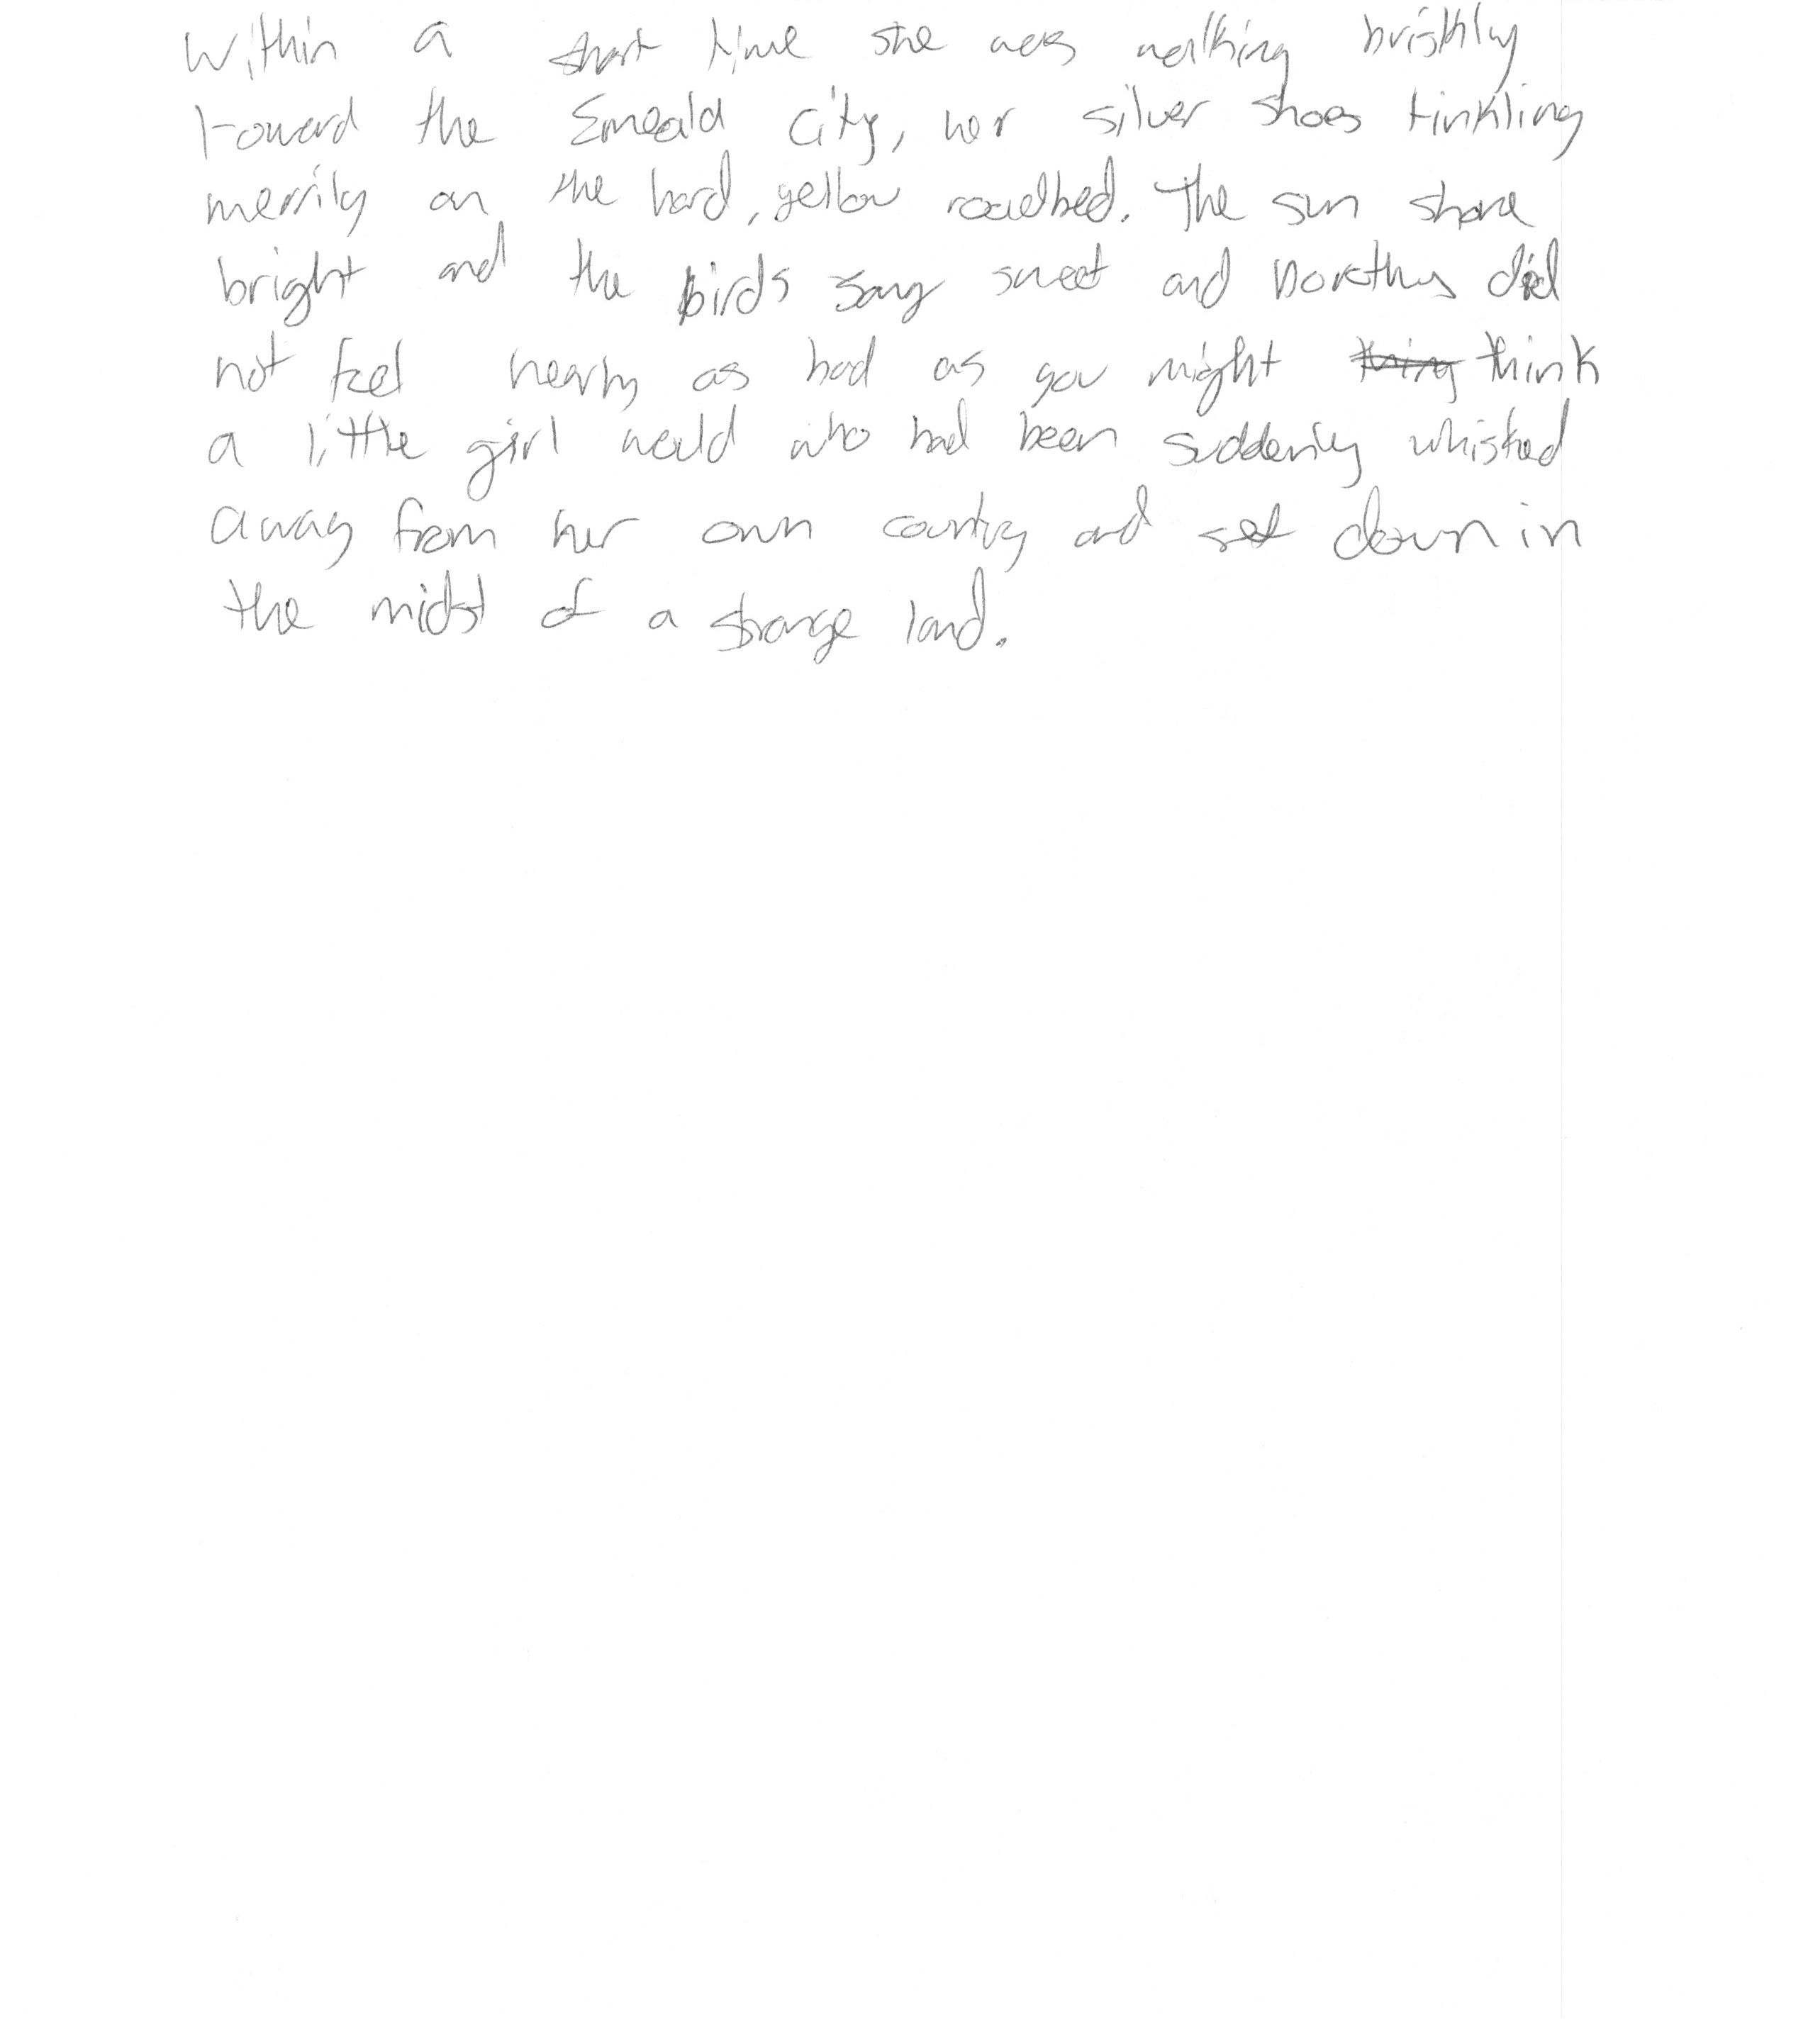 Within a short time she was walking briskly
toward the Emeald City, her silver shoes tinkling
merrily on the hard, yellow roadbed. The sun shone
bright and the birds sang sweet and Dorothy did
not feel nearly as bad as you might thing think
a little girl would who had been suddenly whisked
away from her own country and set down in
the midst of a strange land.